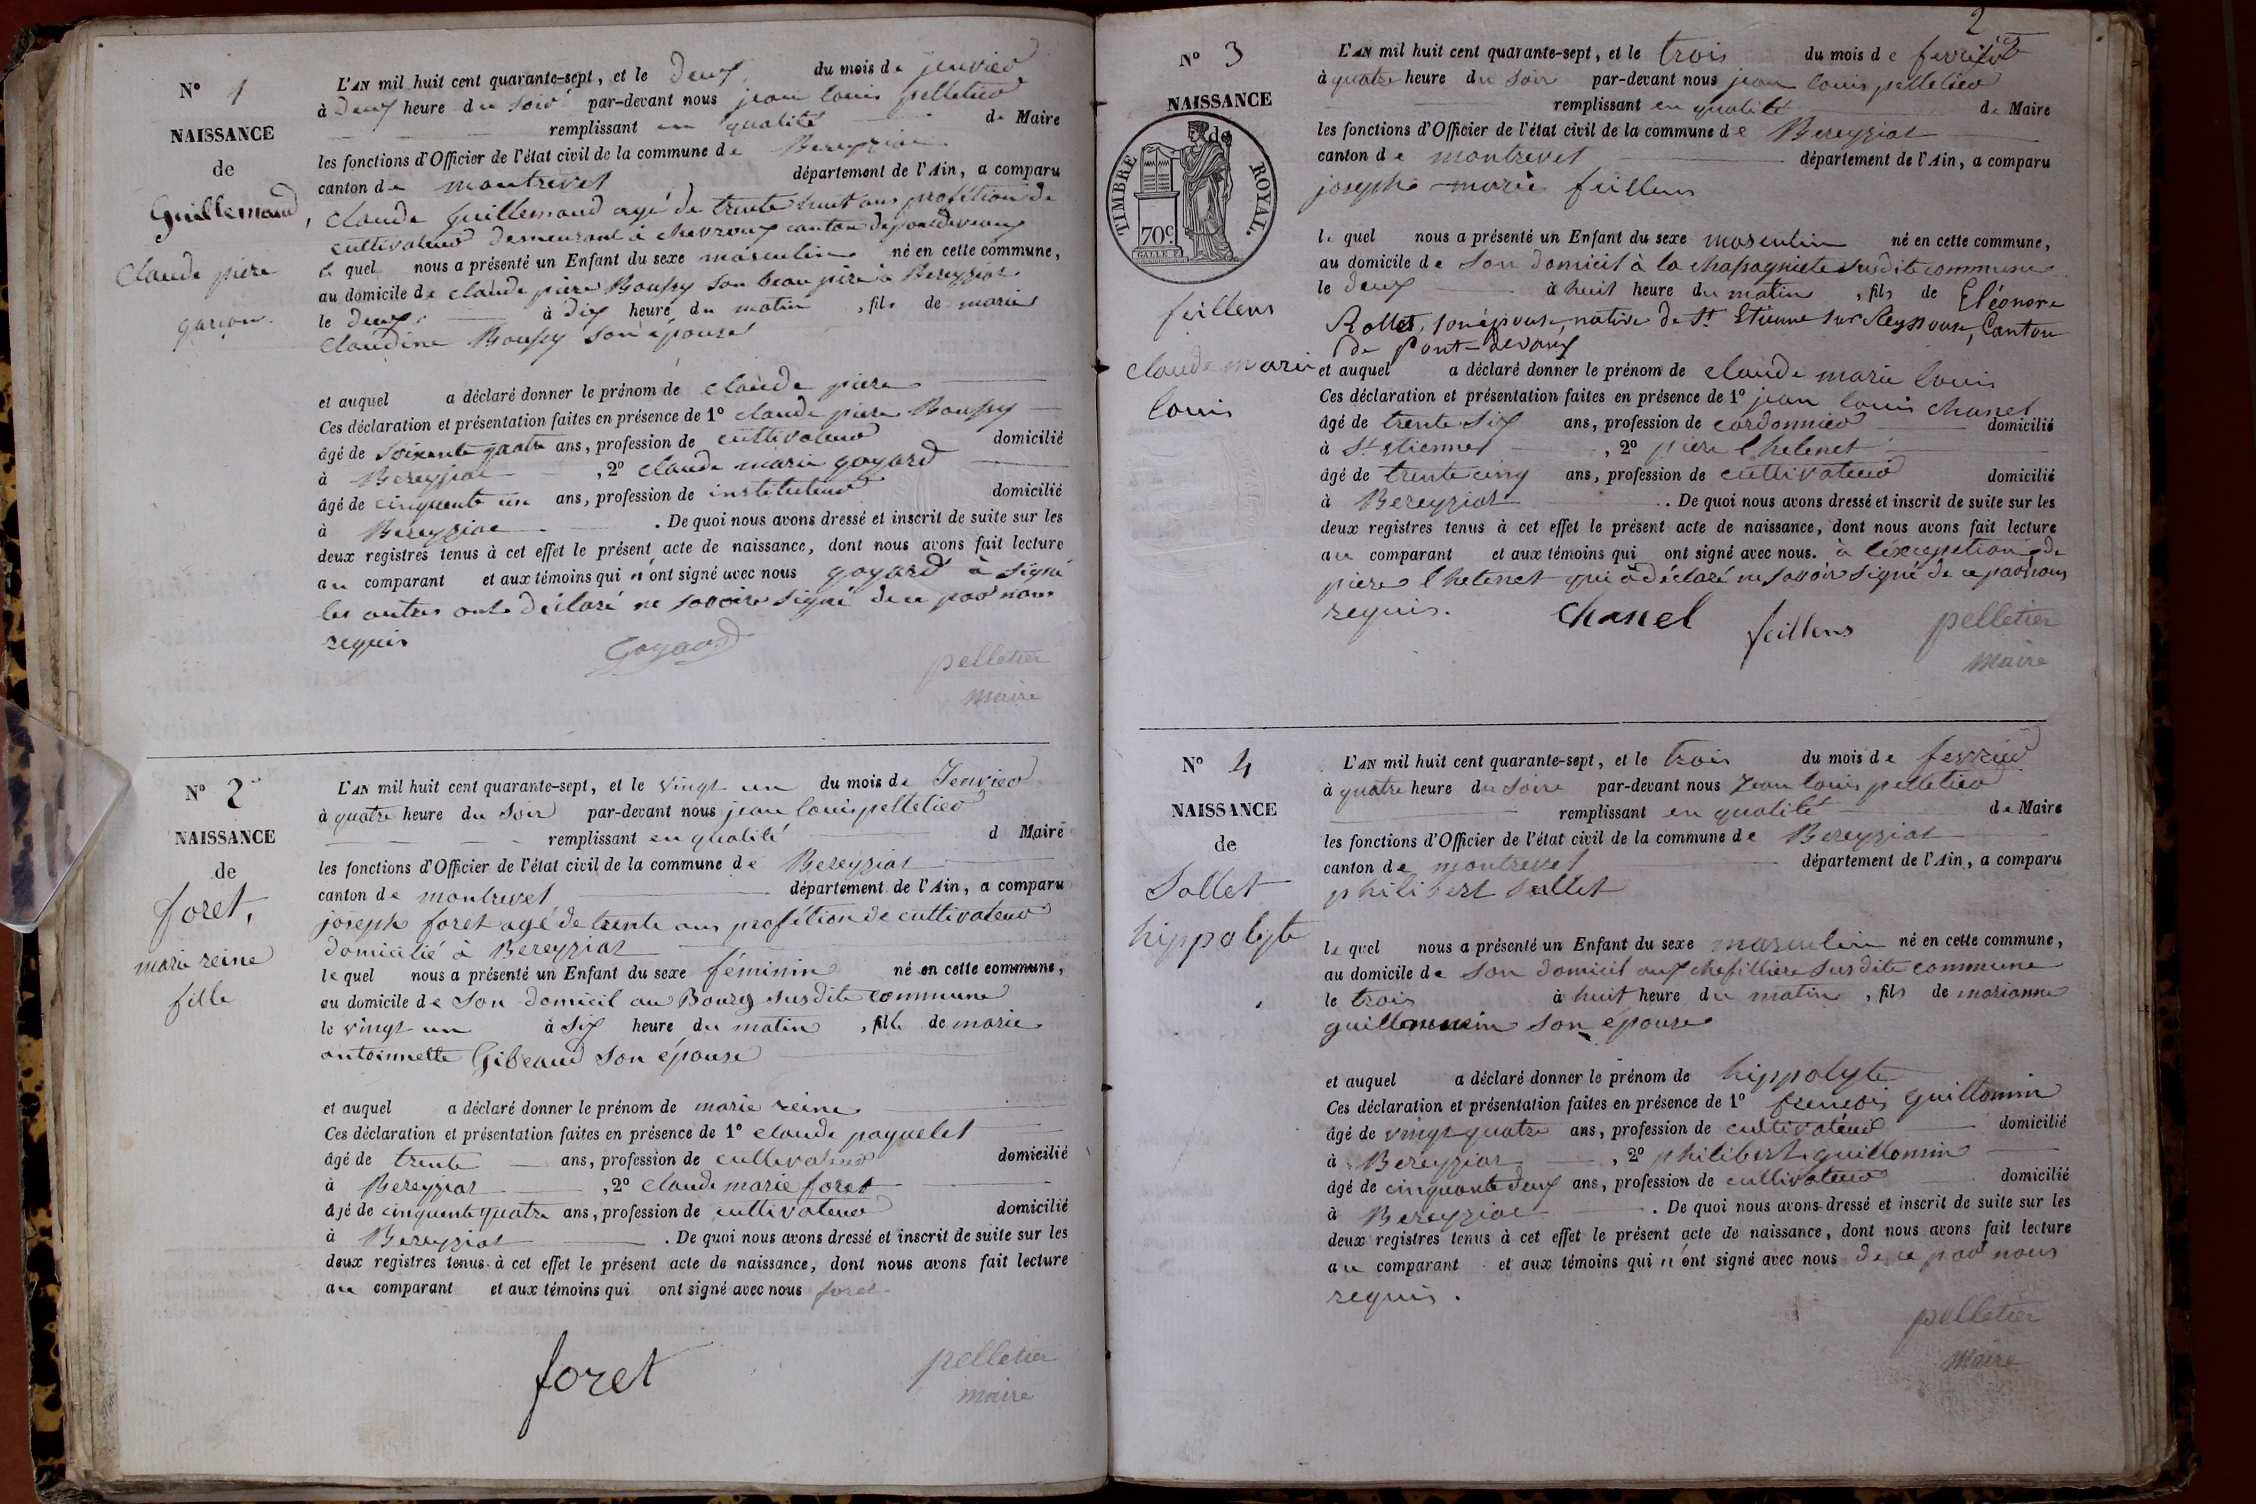 N° 1
NAISSANCE
de
Guillemaud
Claude piere
garçon.
L'AN mil huit cent quarante-sept, et le deux du mois de jenvier
à deux heure du soir par-devant nous jean louis pelletier
remplissant en qualité de Maire
les fonctions d'Officier de l'état civil de la commune de Bereyziat
canton de montrevel département de l'Ain, a comparu
claude guillemaud agé de trente huit ans profétion de
cultivateur demeurant à chevroux canton de pontdevaux
le quel nous a présenté un Enfant du sexe masculin né en cette commune,
au domicile de claude piere Boussy son beau père à Bereyziat
le deux à dix heure du matin, fils de marie
Claudine Boussy son épouse
et auquel a déclaré donner le prénom de claude piere
Ces déclaration et présentation faites en présence de 1° claude piere Boussy
âgé de soixante quatre ans, profession de cultivateur domicilié
à Bereyziat, 2° claude marie goyard
âgé de cinquente un ans, profession de instituteur domicilié
à Bereyziat. De quoi nous avons dressé et inscrit de suite sur les
deux registres tenus à cet effet le présent acte de naissance, dont nous avons fait lecture
au comparant et aux témoins qui n'ont signé avec nous goyard à signé
les autres ont déclaré ne savoire signé de ce par nous
requis
Goyard
pelletier
maire
N° 2
NAISSANCE
de
foret,
marie reine
fille
L'AN mil huit cent quarante-sept, et le vingt un du mois de Jenvier
à quatre heure du soir par-devant nous jean louis pelletier
remplissant en qualité d Maire
les fonctions d'Officier de l'état civil de la commune de Bereyziat
canton de montrevel département de l'Ain, a comparu
joseph foret agé de trente ans profétion de cultivateur
domicilié à Bereyziat
le quel nous a présenté un Enfant du sexe féminin né en cette commune,
au domicile de son domicil au Bourg susdite commune
le vingt un à six heure du matin, fille de marie
antoinnette Gibeaud son épouse
et auquel a déclaré donner le prénom de marie reine
Ces déclaration et présentation faites en présence de 1° claude paquelet
âgé de trente ans, profession de cultivateur domicilié
à Bereyziat, 2° claude marie foret
âgé de cinquente quatre ans, profession de cultivateur domicilié
à Bereyziat. De quoi nous avons dressé et inscrit de suite sur les
deux registres tenus à cet effet le présent acte de naissance, dont nous avons fait lecture
au comparant et aux témoins qui ont signé avec nous foret
foret
pelletier
maire
2
N° 3
NAISSANCE
de
TIMBRE ROYAL.
70c
feillens
claude marie
louis
L'AN mil huit cent quarante-sept, et le trois du mois de fevrier
à quatre heure du soir par-devant nous jean louis pelletier
remplissant en qualité de Maire
les fonctions d'Officier de l'état civil de la commune de Bereyziat
canton de montrevel département de l'Ain, a comparu
joseph marie feillens
le quel nous a présenté un Enfant du sexe masculin né en cette commune,
au domicile de son domicil à la chassagniete susdite commune
le deux à huit heure du matin, fils de Eléonore
Rollet, son épouse, native de St Etienne sur Reyssouse, Canton
de Pont-devaux
et auquel a déclaré donner le prénom de claude marie louis
Ces déclaration et présentation faites en présence de 1° jean louis chanel
âgé de trente six ans, profession de cordonnier domicilié
à St etienne, 2° piere lhetenet
âgé de trente cinq ans, profession de cultivateur domicilié
à Bereyziat. De quoi nous avons dressé et inscrit de suite sur les
deux registres tenus à cet effet le présent acte de naissance, dont nous avons fait lecture
au comparant et aux témoins qui ont signé avec nous. à l'éxcepetion de
piere lhetenet qui a déclaré ne savoir signé de ce par nous
requis.
Chanel
feillens
pelletier
maire
N° 4
NAISSANCE
de
Sallet
hippolyte
L'AN mil huit cent quarante-sept, et le trois du mois de fevrier
à quatre heure du soire par-devant nous Jean louis pelletier
remplissant en qualité de Maire
les fonctions d'Officier de l'état civil de la commune de Bereyziat
canton de montrevel département de l'Ain, a comparu
philibert sallet
le quel nous a présenté un Enfant du sexe masculin né en cette commune,
au domicile de son domicil aux susdite commune
le trois à huit heure du matin, fils de marianne
guillemin son épouse
et auquel a déclaré donner le prénom de hippolyte
Ces déclaration et présentation faites en présence de 1° frencois guillomin
âgé de vingt quatre ans, profession de cultivateur domicilié
à Bereyziat, 2° philibert guillomin
âgé de cinquante deux ans, profession de cultivateur domicilié
à Bereyziat. De quoi nous avons dressé et inscrit de suite sur les
deux registres tenus à cet effet le présent acte de naissance, dont nous avons fait lecture
au comparant et aux témoins qui n'ont signé avec nous de ce par nous
requis.
pelletier
maire